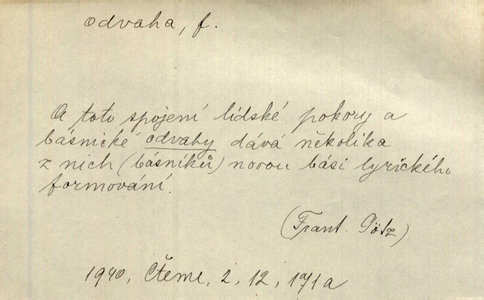 odvaha, f.
A toto spojení lidské pokory a
básnické odvahy dává několika
z nich (básníků) novou bási lyrického
formování.
(Frant. Götz)
1940, Čteme, 2, 12, 171a